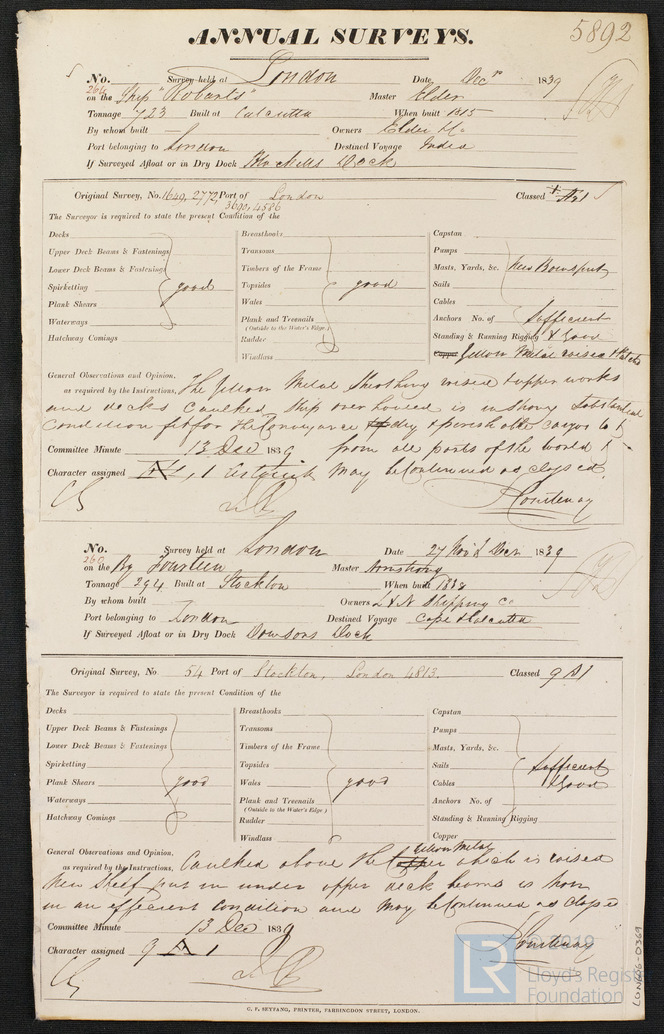 5892
ANNUAL SURVEYS.
No. 264 Survey held at London Date Decr 1839
on the Ship "Robarts" Master Elder
Tonnage 723 Built at Calcutta When built 1815
By whom built — Owners Elder &Co
Port belonging to London Destined Voyage India
If Surveyed Afloat or in Dry Dock Dock
Original Survey, No. 1649, 2772, 3690, 4586 Port of London Classed Æ1
The Surveyor is required to state the present Condition of the
Decks Breasthooks Capstan
Upper Deck Beams & Fastenings Transoms Pumps
Lower Deck Beams & Fastenings Timbers of the Frame Masts, Yards, &c. New Bowsprit
Spirketting good Topsides good Sails
Plank Shears Wales Cables
Waterways Plank and Treenails Anchors No. of Sufficient
(Outside to the Water's Edge)
Hatchway Comings Rudder Standing & Running Rigging & Good
Windlass Copper Yellow Metal raised
General Observations and Opinion,
as required by the Instructions, The Yellow Metal Sheathing raised topper works
and decks Caulked, Ship overhauled is in strong substantial
condition fit for the Conveyance of dry & perishable cargo to &
Committee Minute 13 Dec 1839 from all parts of the world &
Character assigned 1 may be Continued as classed
Courtenay
No. 260 Survey held at London Date 27 Nov & Decr 1839
on the Bg Fourteen Master Armstrong
Tonnage 294 Built at Stockton When built 1838
By whom built — Owners L & N Shipping Co
Port belonging to London Destined Voyage Cape & Calcutta
If Surveyed Afloat or in Dry Dock Dowsons Dock
Original Survey, No 54 Port of Stockton, London 4813. Classed 9 A1
The Surveyor is required to state the present Condition of the
Decks Breasthooks Capstan
Upper Deck Beams & Fastenings Transoms Pumps
Lower Deck Beams & Fastenings Timbers of the Frame Masts, Yards, &c.
Spirketting Topsides Sails Sufficient
Plank Shears good Wales good Cables & Good
Waterways Plank and Treenails Anchors No. of
(Outside to the Water's Edge)
Hatchway Comings Rudder Standing & Running Rigging
Windlass Copper
General Observations and Opinion,
as required by the Instructions, Caulked above the Copper Yellow Metal which is raised
New Shelf put in under upper deck beams is now
in an efficient condition and may be Continued as classed
Committee Minute 13 Dec 1839
Character assigned 9 A 1 Courtenay
© 2019
LR Lloyd's Register Foundation
LON606-0369
C. F. SEYFANG, PRINTER, FARRINGDON STREET, LONDON.